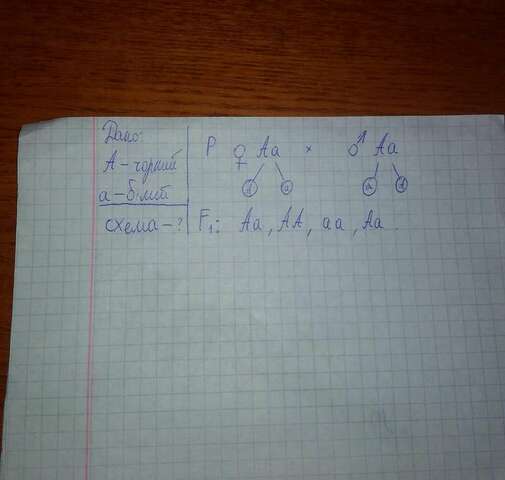 Дано:
А – чорний
а – білий
схема – ?
P ♀ Aa × ♂ Aa
A a a A
F₁: Aa, AA, aa, Aa.